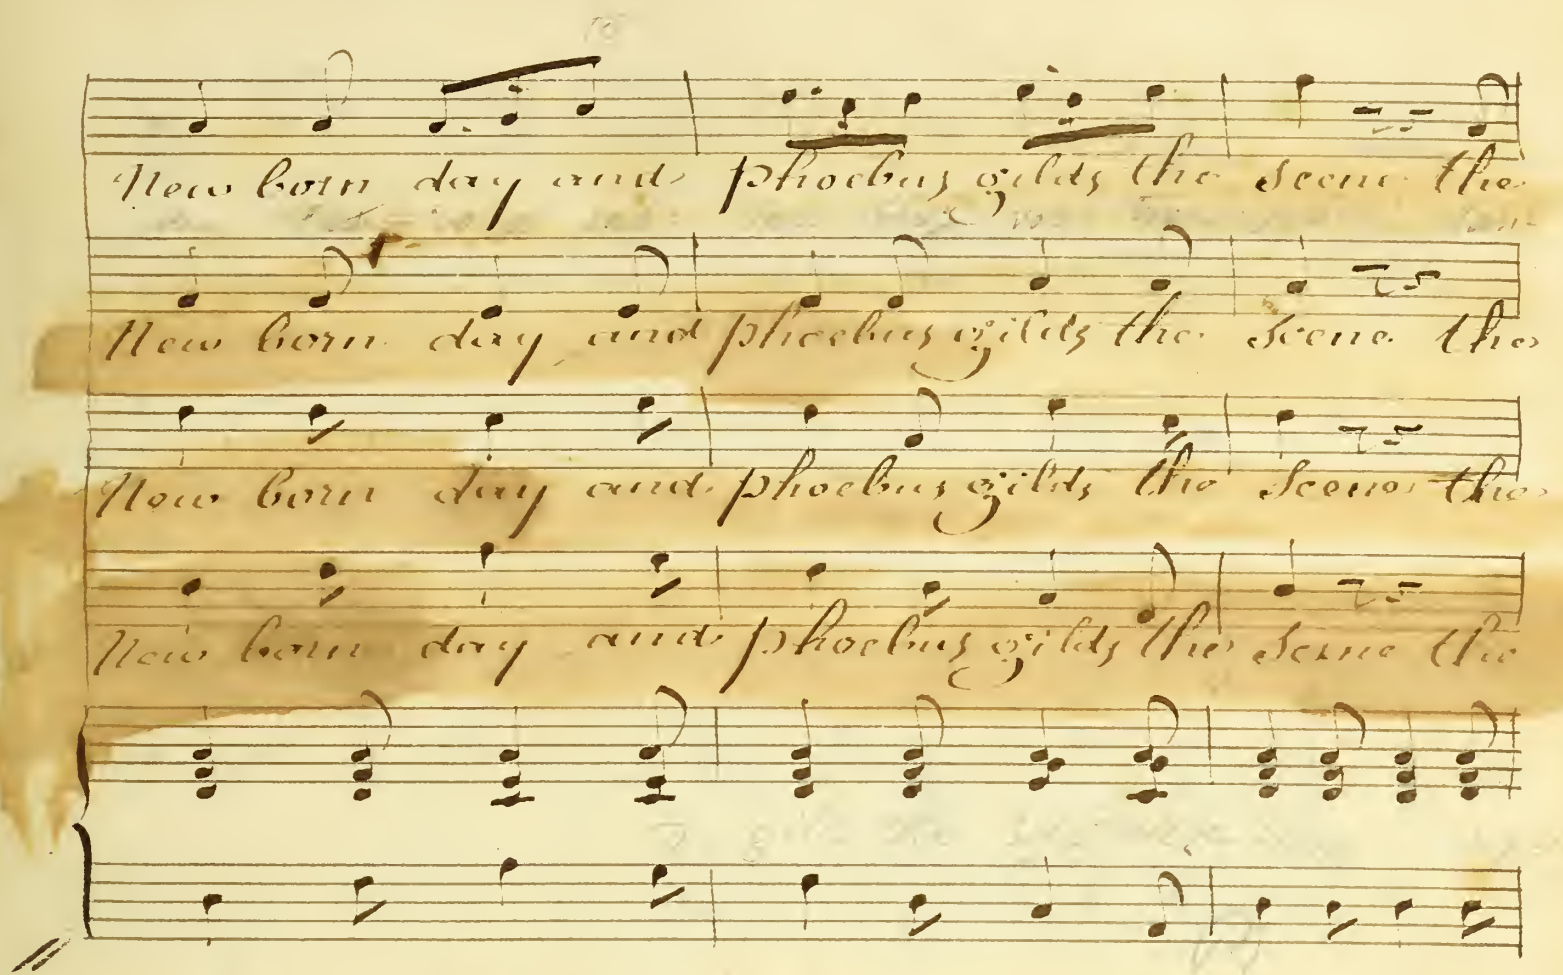 New born day and phoebus gilds the scene the
New born day and phoebus gilds the scene the
New born day and phoebus gilds the Scene the
New born day and phoebus gilds the Scene the